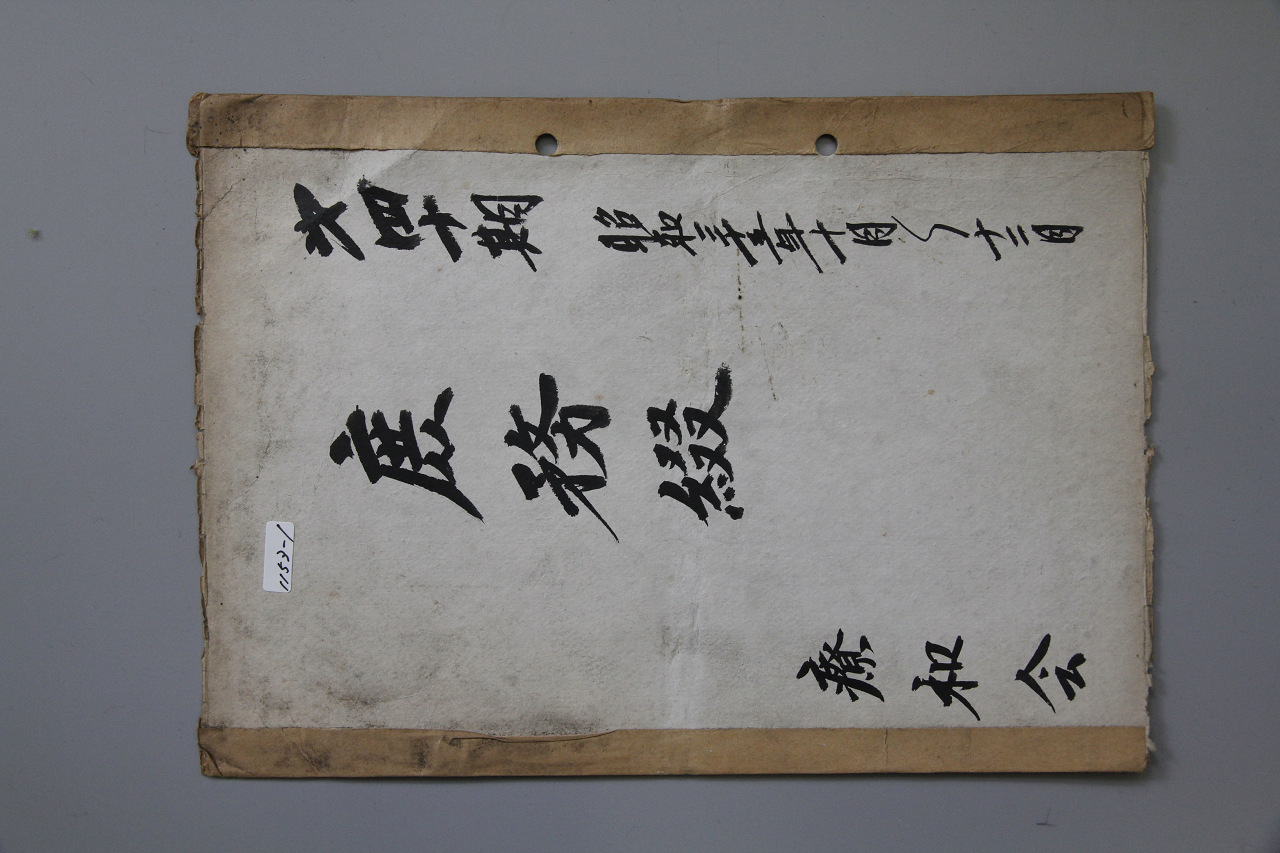 第四十期 昭和三十五年十月〜十二月
庶務綴
療和会
1153-1